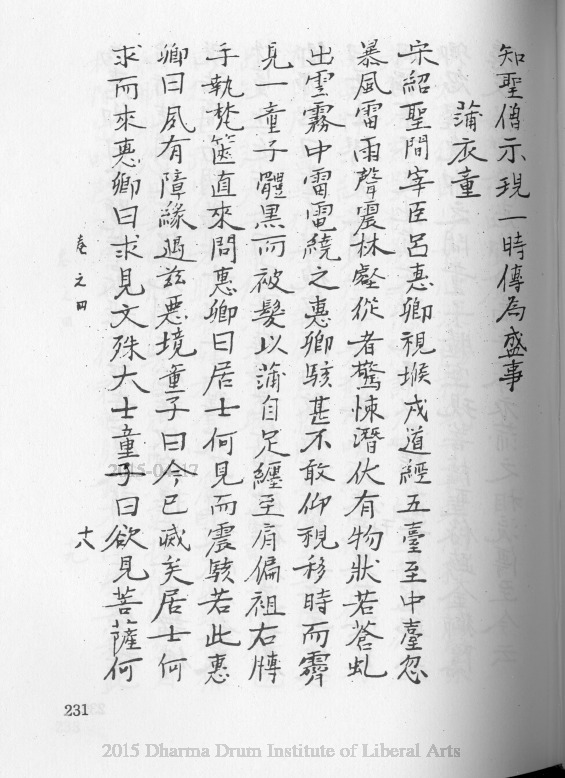 知聖僧示現一時傳為盛事
蒲衣童
宋紹聖間宰臣呂惠卿視堠戍道經五臺至中臺忽
暴風雷雨聲震林壑從者驚悚潛伏有物狀若蒼虬
出雲霧中雷電繞之惠卿駭甚不敢仰視移時而霽
見一童子體黑而被髮以蒲自足纏至肩偏袒右膊
手執梵篋直來問惠卿曰居士何見而震駭若此惠
卿曰夙有障緣遇茲惡境童子曰今已滅矣居士何
求而來惠卿曰求見文殊大士童子曰欲見菩薩何
卷之四
十八
231
2015-04-17
2015 Dharma Drum Institute of Liberal Arts